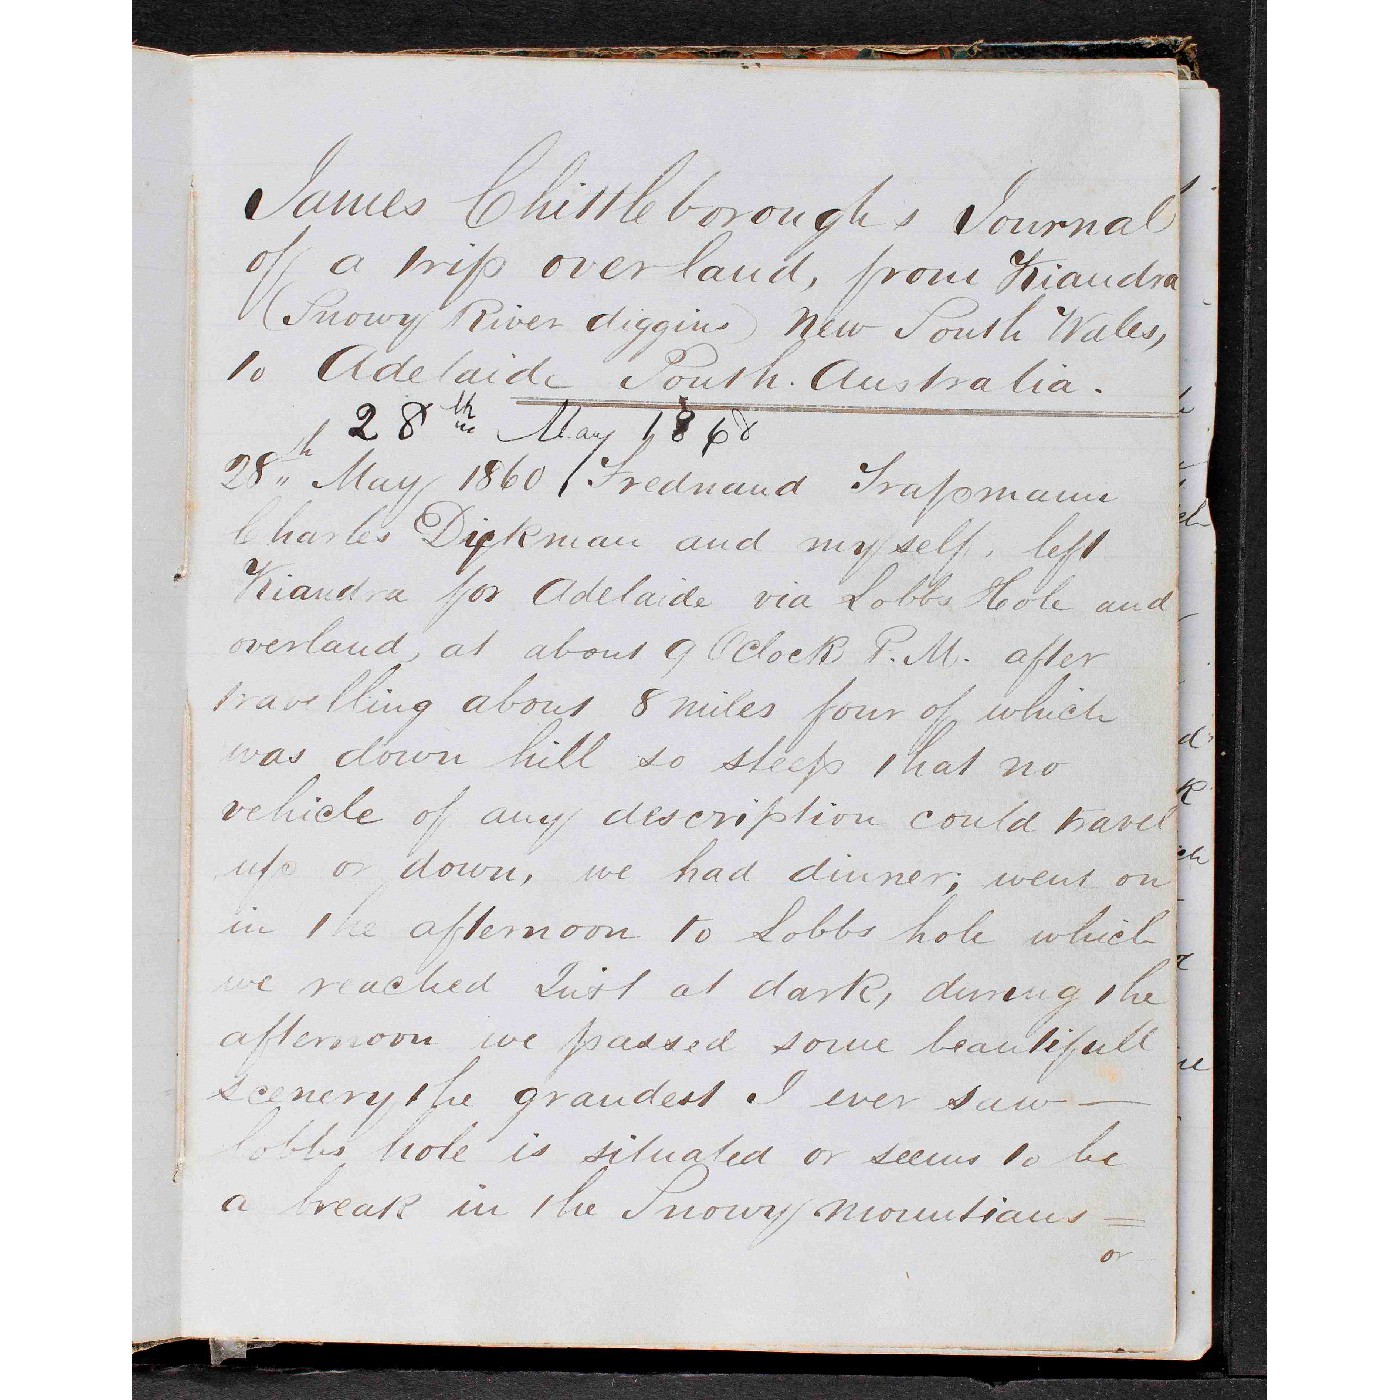 James Chittleborough s Journal
of a trip overland, from Kiandra
(Snowy River diggins) New South Wales,
to Adelaide South. Australia.
28th May 1868
28th May 1860 / Frednand Trapmann
Charles Dickman and myself, left
Kiandra for Adelaide via Lobbs Hole and
overland, at about 9 OClock P.M. after
travelling about 8 miles four of which
was down hill so steep that no
vehicle of any description could travel
up or down, we had dinner; went on
in the afternoon to Lobbs hole which
we reached Just at dark, during the
afternoon we passed some beautifull
scenery the grandest I ever saw —
lobbs hole is situated or seems to be
a break in the Snowy mountians =
or